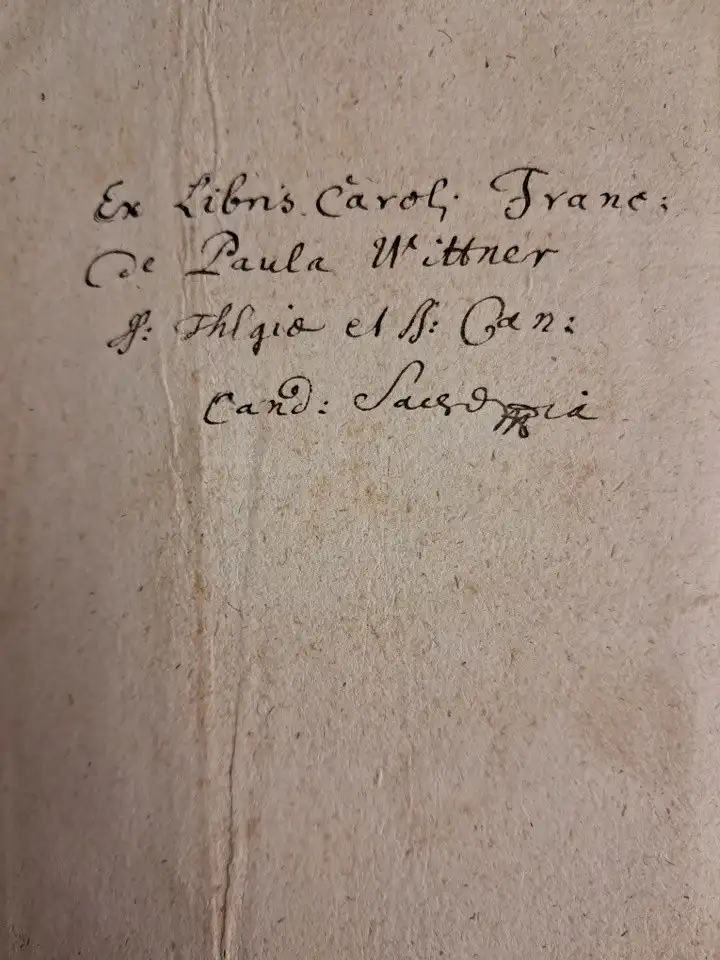 Ex Libris Caroli Franc:
de Paula Wittner
ſſ: Thlgiæ et ſſ: Can:
Cand: